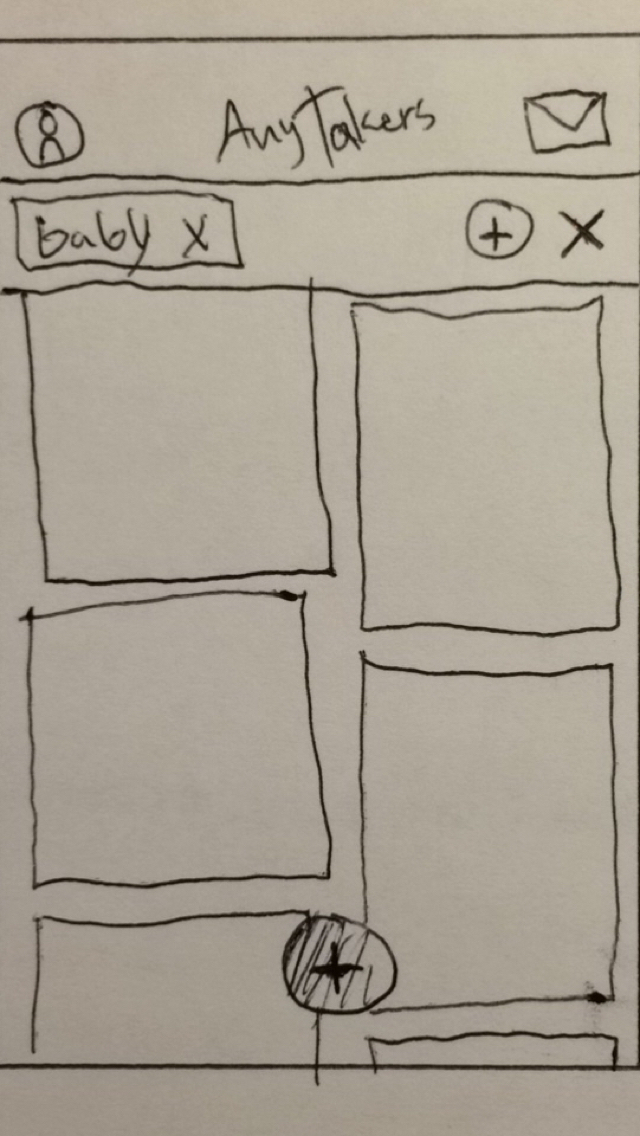 AnyTakers
Baby X